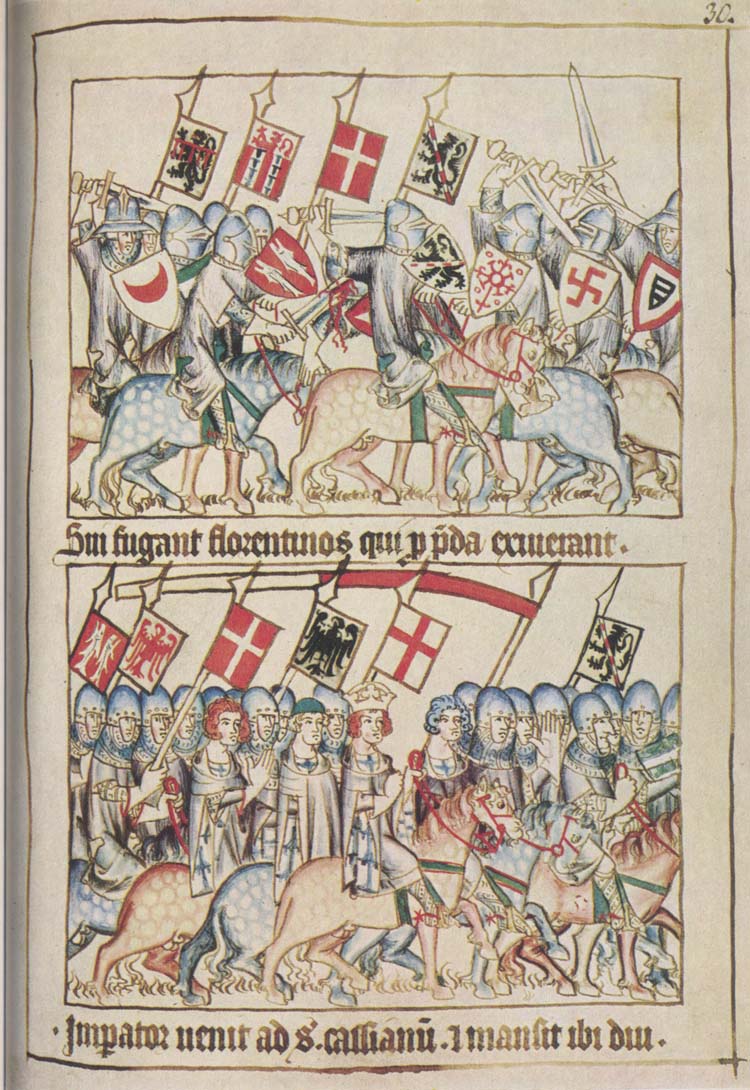 30.
Sui fugant florentinos qui p p̄da exiuerant.
·Imꝑator uenit ad S. cassianū. ⁊ mansit ibi diu.